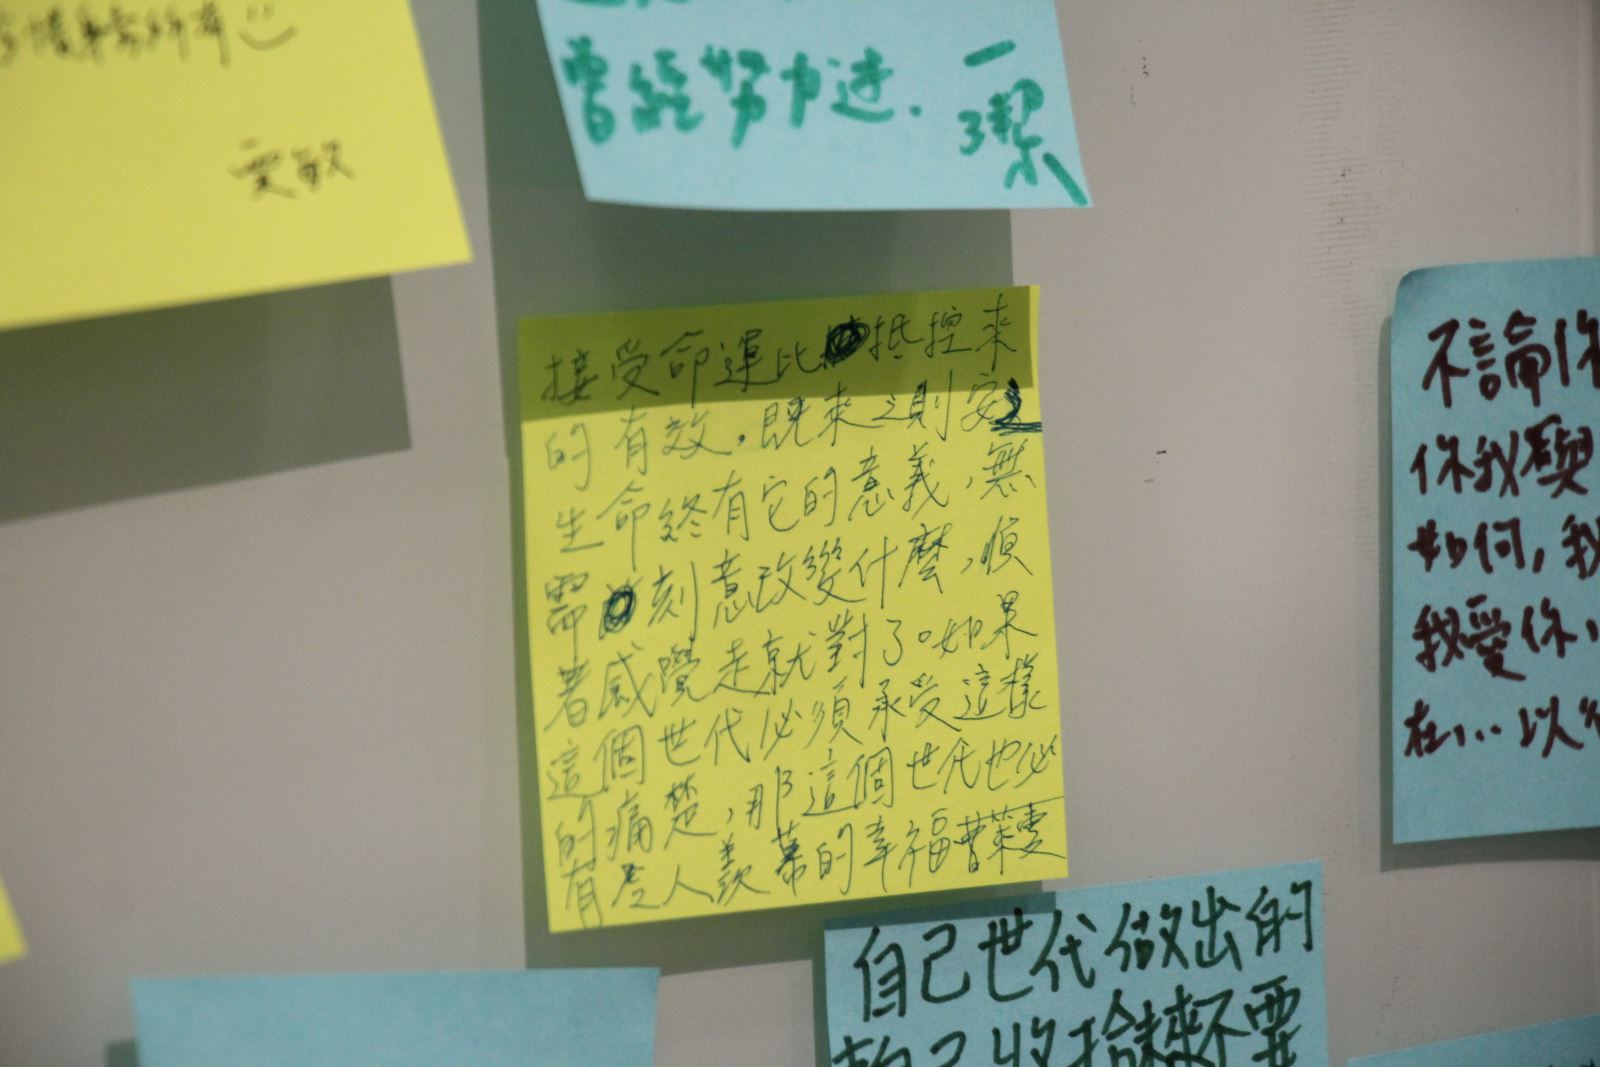 曾經努力过.
一
潔
接受命運比抵控來
的有效，既來之則安之
生命終有它的意義，無
需刻意改變什麼，順
著感覺走就對了。如果
這個世代必須承受這樣
的痛楚，那這個世代也必
有令人羨慕的幸福
不論你
你我
如何，我
我愛你，
在,...以
自己世代做出的
自己收拾 不要